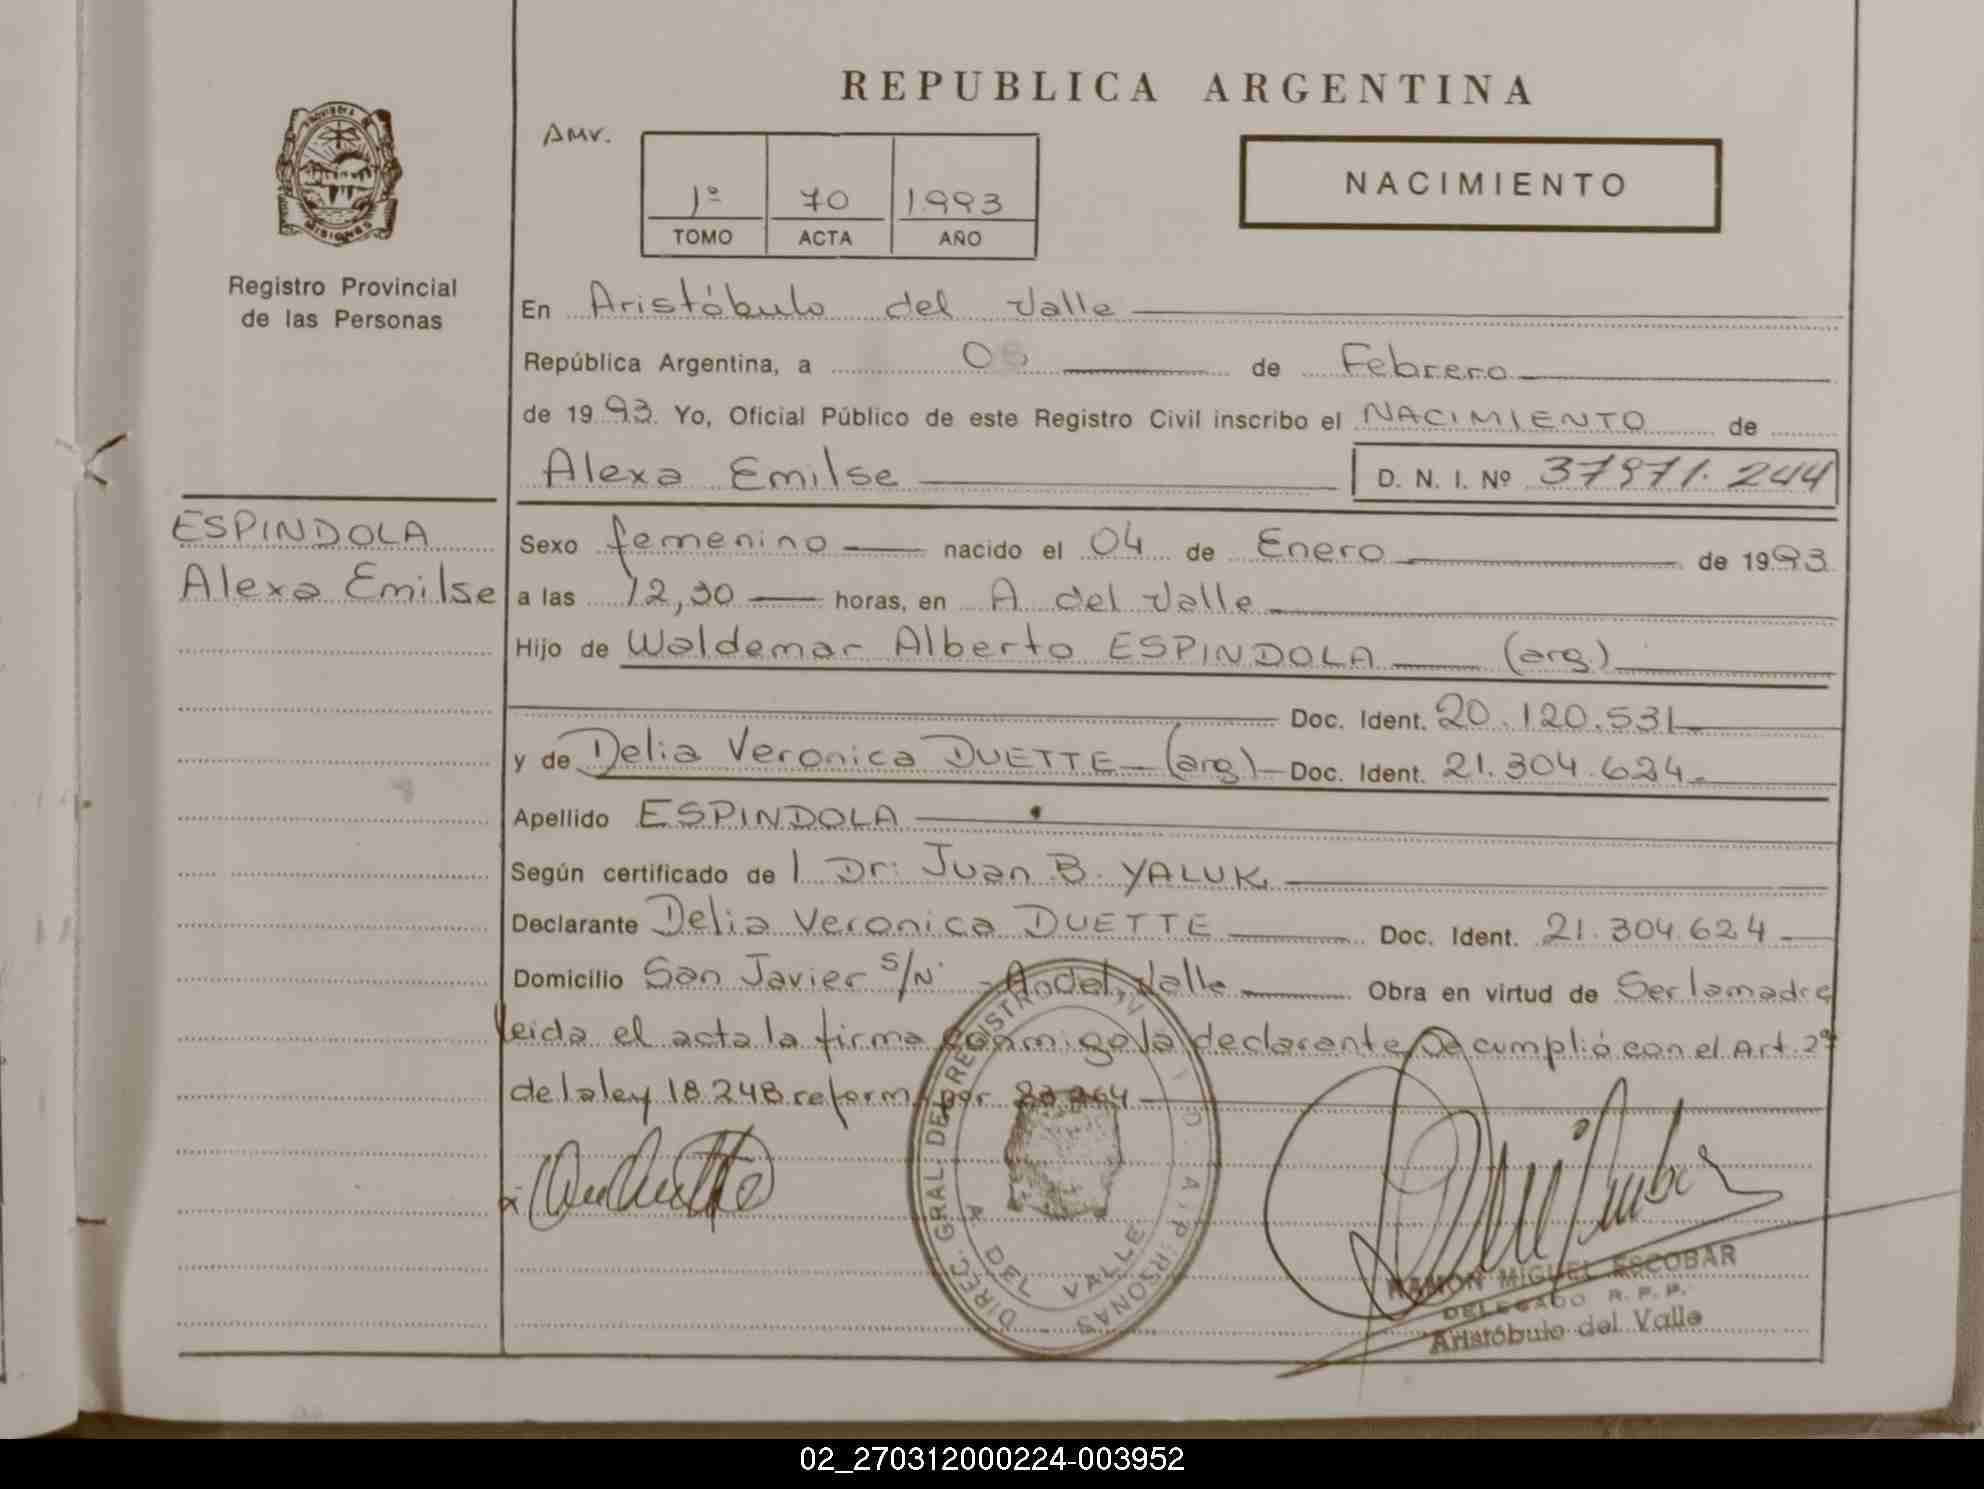 REPUBLICA ARGENTINA
AMV.
1º 70 1993
TOMO ACTA AÑO
NACIMIENTO
PROVINCIA DE
MISIONES
Registro Provincial
de las Personas
En Aristóbulo del Valle
República Argentina, a de Febrero
de 1993 Yo, Oficial Público de este Registro Civil inscribo el NACIMIENTO de
Alexa Emilse D. N. I. Nº 37971.244
ESPINDOLA
Alexa Emilse
Sexo femenino nacido el 04 de Enero de 1993
a las 12,30 horas, en A del Valle
Hijo de Waldemar Alberto ESPINDOLA (arg.)
Doc. Ident. 20.120.531
y de Delia Veronica DUETTE (arg) Doc. Ident. 21.304.624
Apellido ESPINDOLA
Según certificado de l Dr: Juan B. YALUK
Declarante Delia Veronica DUETTE Doc. Ident. 21.304.624
Domicilio San Javier S/N - A del Valle Obra en virtud de Ser la madre
leida el acta la firma conmigo la declarante Se cumplió con el Art. 2º
de la ley 18.248 reform por
DIREC. GRAL. DEL REGISTRO PERSONAS
A. DEL VALLE
RAMON MIGUEL ESCOBAR
DELEGADO R. P. P.
Aristóbulo del Valle
02_270312000224-003952